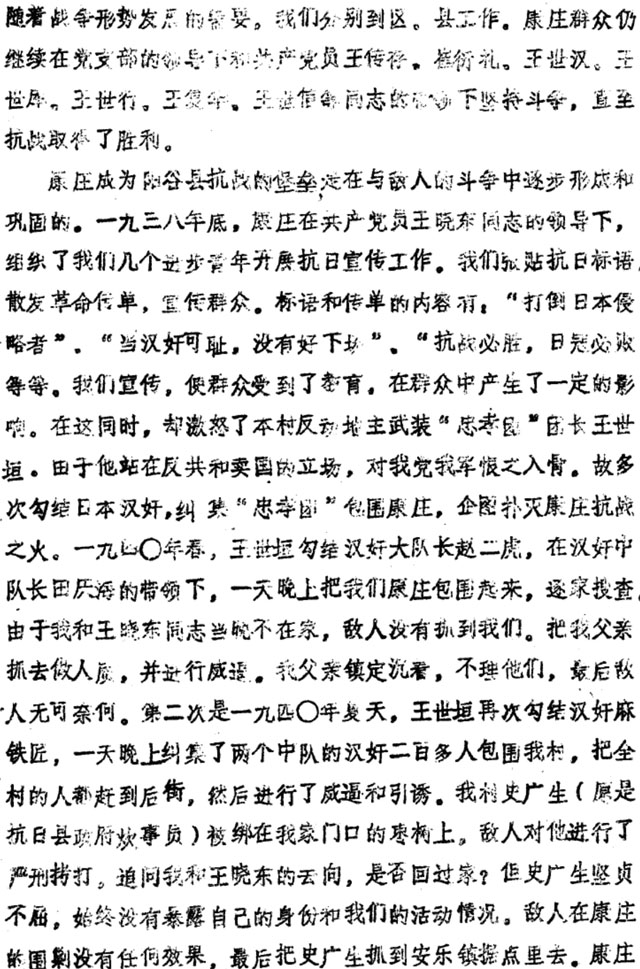 随着战争形势发展的需要。我们分别到区。县工作。康庄群众仍
继续在党支部的领导下和共产党员王传存。崔衍礼。王世汉。王
世厚。王世行。王世俊等同志的带领下坚持斗争，直至
抗战取得了胜利。
康庄成为阳谷县抗战的堡垒是在与敌人的斗争中逐步形成和
巩固的。一九三八年底，康庄在共产党员王晓东同志的领导下，
组织了我们几个进步青年开展抗日宣传工作。我们张贴抗日标语，
散发革命传单，宣传群众。标语和传单的内容有：“打倒日本侵
略者”、“当汉奸可耻，没有好下场”、“抗战必胜，日冠必败
等等。我们宣传，使群众受到了教育，在群众中产生了一定的影
响。在这同时，却激怒了本村反动地主武装“忠孝团”团长王世
垣。由于他站在反共和卖国的立场，对我党我军恨之入骨。故多
次勾结日本汉奸，纠集“忠孝团”包围康庄，企图扑灭康庄抗战
之火。一九四〇年春，王世垣勾结汉奸大队长赵二虎，在汉奸中
队长田厌海的带领下，一天晚上把我们康庄包围起来，逐家搜查。
由于我和王晓东同志当晚不在家，敌人没有抓到我们。把我父亲
抓去做人质，并进行威逼。我父亲镇定沉着，不理他们，最后敌
人无可奈何。第二次是一九四〇年夏天，王世垣再次勾结汉奸麻
铁匠，一天晚上纠集了两个中队的汉奸二百多人包围我村，把全
村的人都赶到后街，然后进行了威逼和引诱。我村史广生（原是
抗日县政府炊事员）被绑在我家门口的枣树上。敌人对他进行了
严刑拷打。追问我和王晓东的去向，是否回过家？但史广生坚贞
不屈，始终没有暴露自己的身份和我们的活动情况。敌人在康庄
的围剿没有任何效果，最后把史广生抓到安乐镇据点里去。康庄